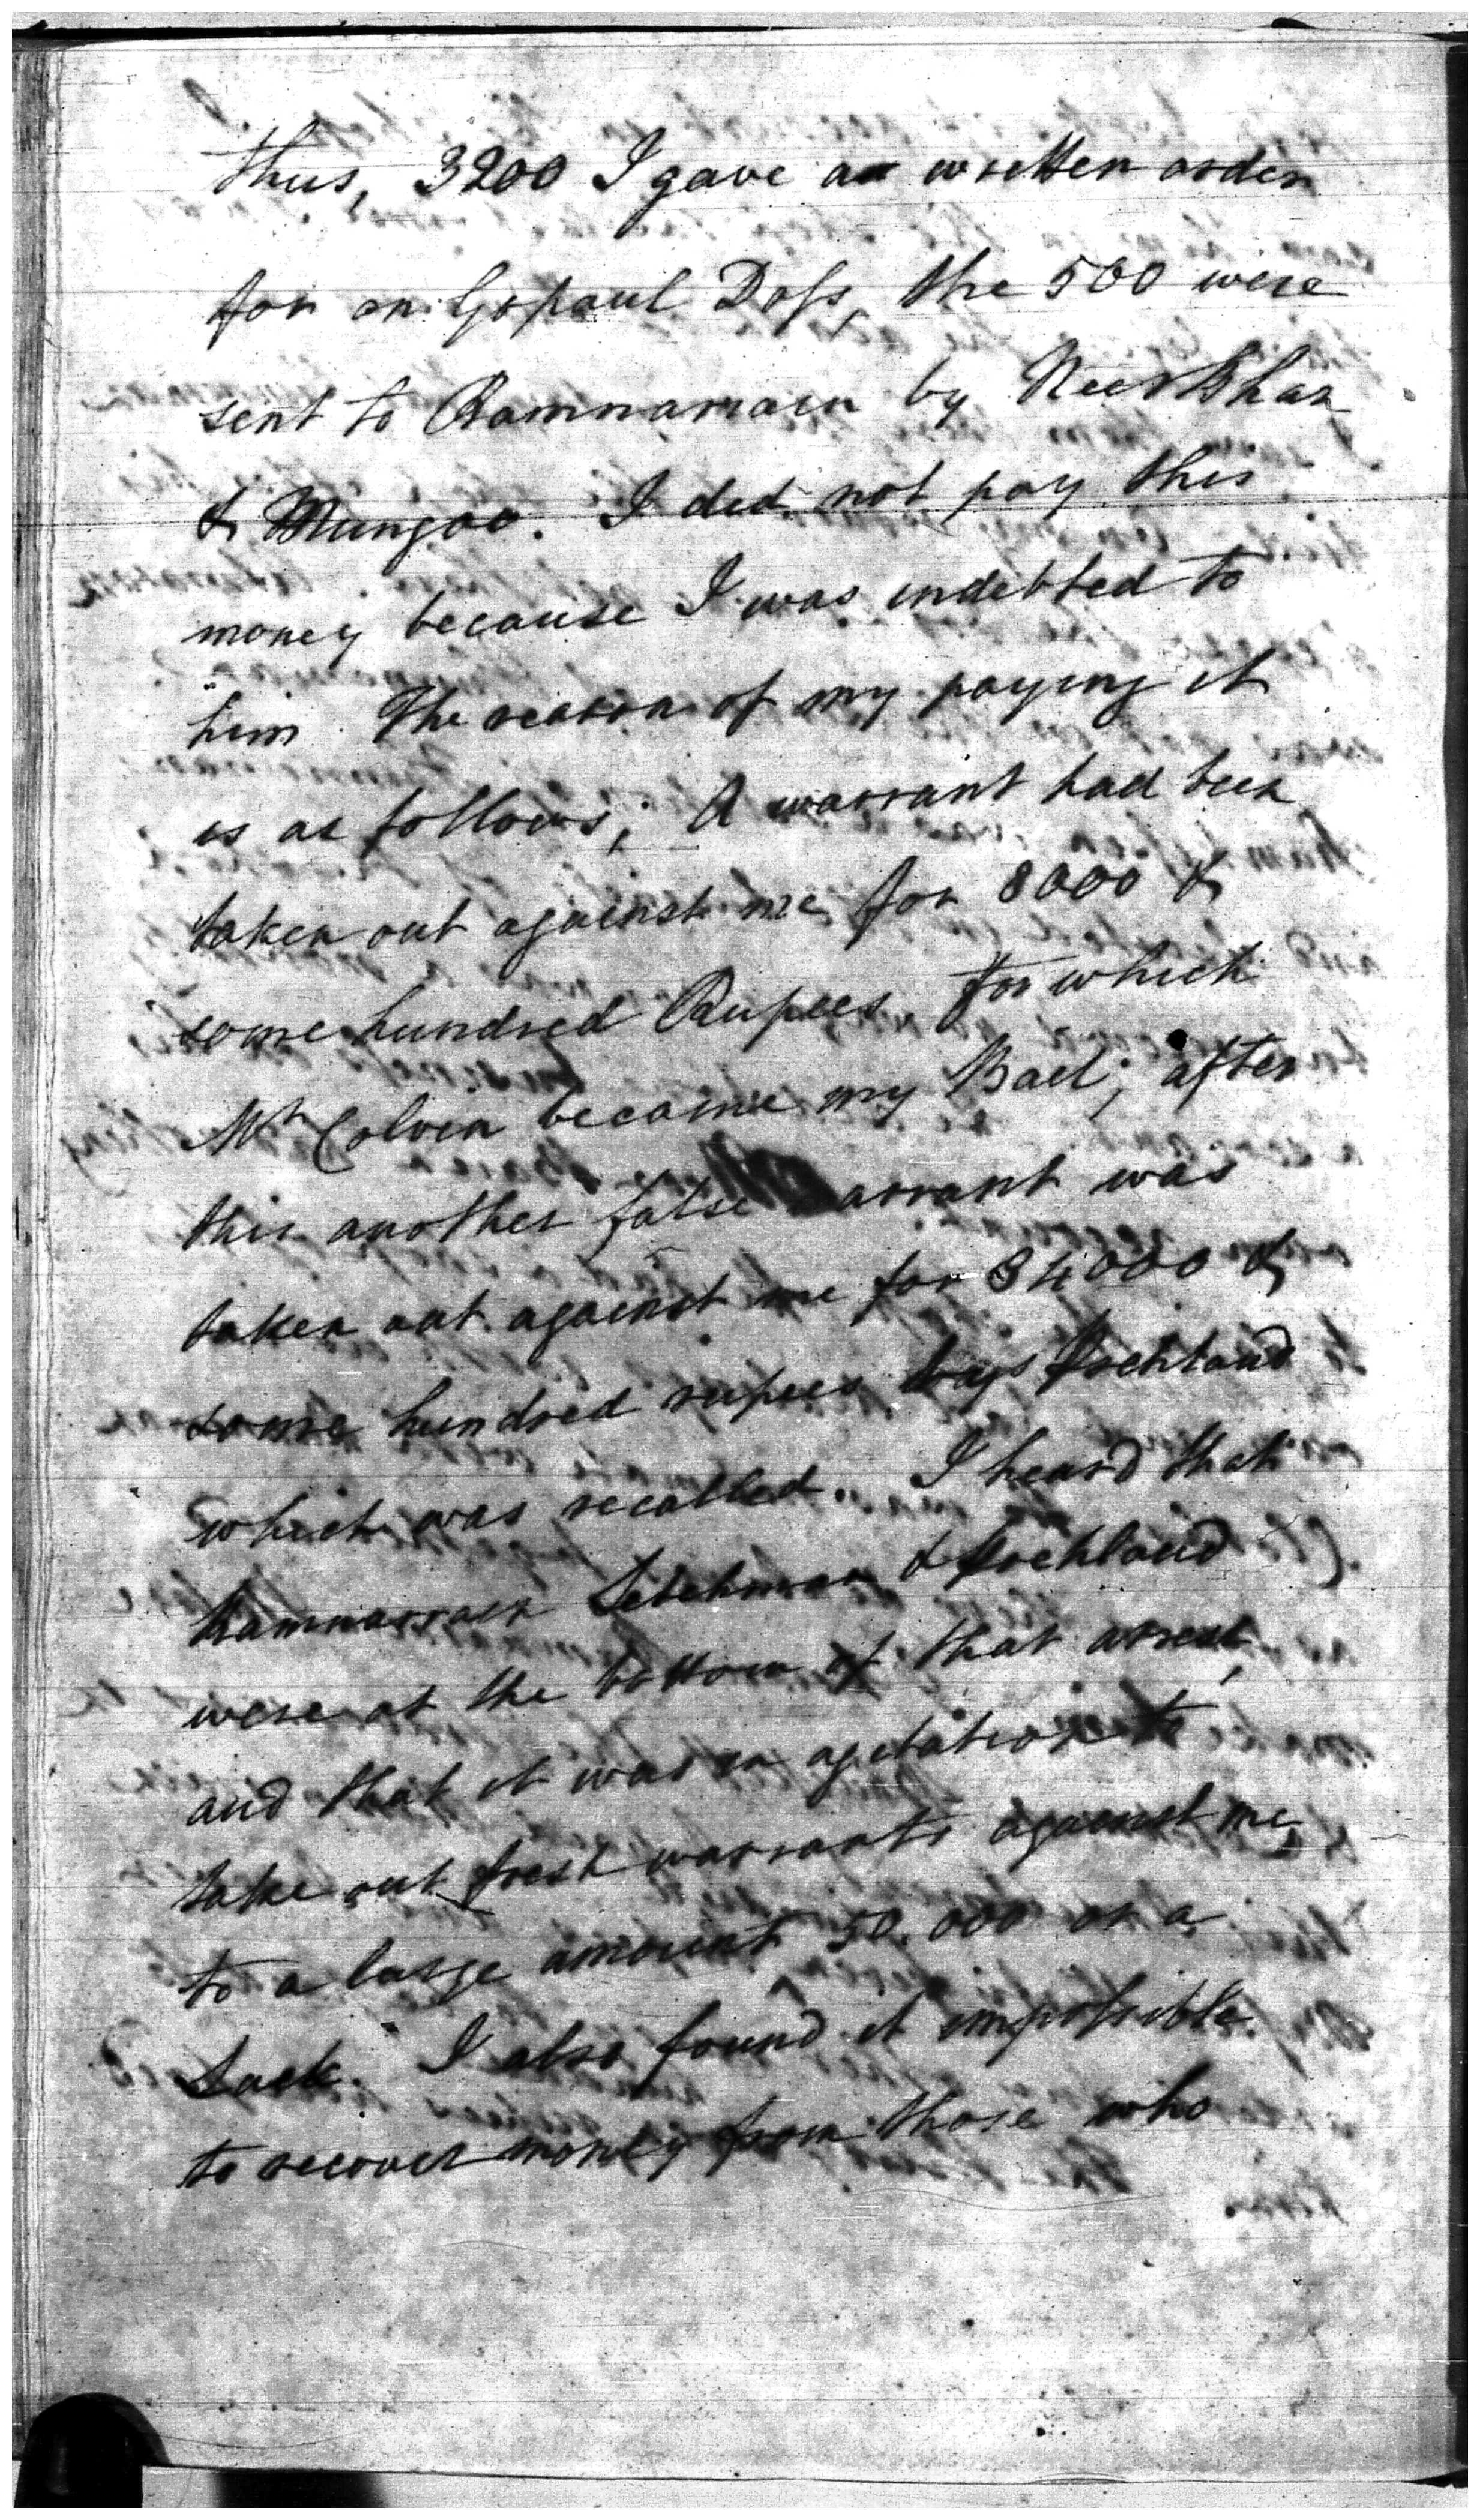 thus, 3200 I gave a written order
for on Gopaul Doss, the 500 were
sent to Ramnarrain by
& Mungoo. I did not pay this
money because I was indebted to
him. The reason of my paying it
is as follows; A warrant had been
taken out against me for 8000 &
some hundred Rupees. for which
Mr Colvin became my Bail; after
this another false warrant was
taken out against me for 34000 &
some hundred rupees
which was recalled. I heard that
Ramnarrain &
were at the bottom of that arrest,
and that it was in agitation to
take out fresh warrants against me
to a large amount 50.000 or a
Lack. I also found it impossible
to recover money from those who